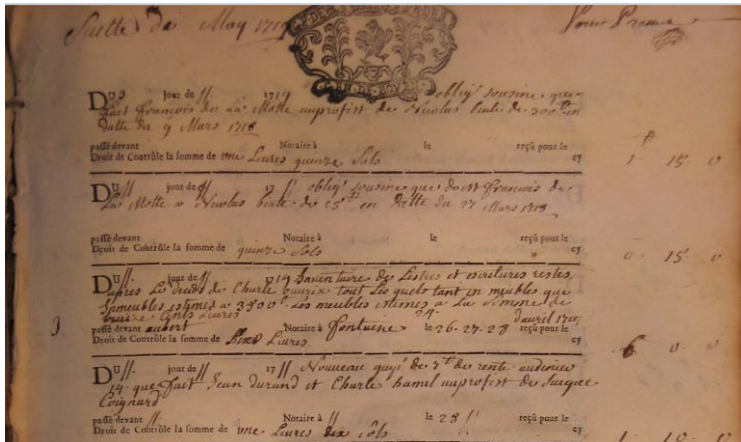 Suitte de May 1719
Du 3 jour de // 1719 oblig^on sousine que
fait françois de La Motte auprofist de Nicolas de 300^lt en
datte du 9 Mars 1718
passé devant Notaire à le reçû pour le
Droit de Contrôle la somme de une Livres quinze Sols cy 1 15 0
Du // jour de // 17 // oblig^on sousine que doit françois de
La Motte a Nicolas de 25^lt en datte du 27 Mars 1718
passé devant Notaire à le reçû pour le
Droit de Contrôle la somme de quinze Sols cy 0 15 0
Du // jour de // 1719 Inventaire de Listres et escritures restes
apres Le deceds de Charle tout Les quels tant en meubles que
Inmeubles estimes a 3300^lt Les meubles estimes a La Somme de
Cents Livres 24. d'avril 1719
passé devant aubert Notaire à fontaine le 26-27-28 reçû pour le
Droit de Contrôle la somme de Livres cy 6 0 0
Du // jour de // 17 // Nouveau de 7^lt de rente
14 que fait Jean durand et Charle hamel auprofist de Jacque
Coignard
passé devant // Notaire à // le 28 // reçû pour le
Droit de Contrôle la somme de une Livres dix sols cy 1 10 0